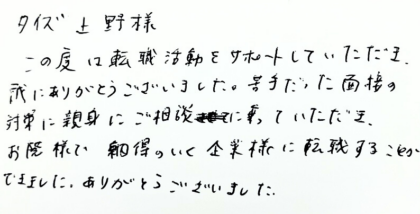 タイズ 上野様
この度は転職活動をサポートしていただき、
誠にありがとうございました。苦手だった面接の
対策に親身にご相談に乗っていただき、
お陰様で 納得のいく企業様に転職することが
できました。ありがとうございました。